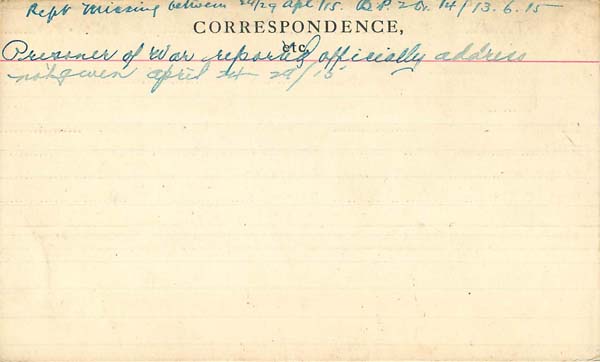 Rept Missing between 24/29 apl/15. B.P. 20. 14/13.6.15
CORRESPONDENCE,
etc.
Prisoner of War reported officially address
not given april 24-29/15